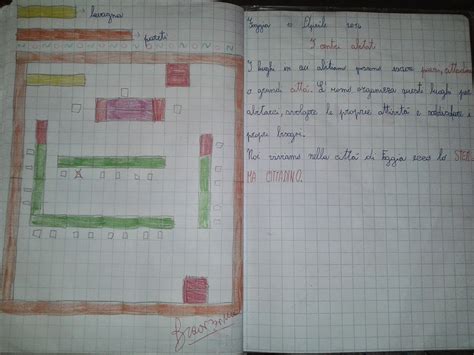 lavagna
pareti
Foggia Aprile
I centri abitati
I luoghi in cui abitiamo possono essere paesi, cittadine
o grandi città. L'uomo organizza questi luoghi per
abitarci, svolgere le proprie attività e soddisfare i
propri bisogni.
Noi viviamo nella città di Foggia ecco lo STEM
MA CITTADINO.